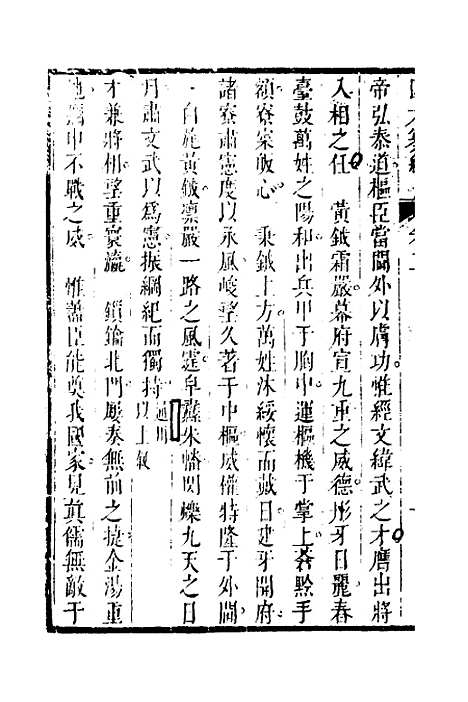 帝弘泰道樞臣當閫外以膚功惟經文緯武之才膺出將
入相之任　黃鉞霜嚴幕府宣九重之威德彤牙日麗春
臺鼓萬姓之陽和出兵甲于胸中運樞機于掌上蒼黔手
額寮寀皈心　秉鉞上方萬姓沐綏懷而戴日建牙開府
諸寮肅憲度以承風峻望久著于中樞威權特隆于外閫
白旄黃鉞凜嚴一路之風霆皁纛朱幡閃爍九天之日
月肅文武以爲憲振綱紀而獨持
以上
通用
才兼將相望重寰瀛　鎖鑰北門屢奏無前之捷金湯重
地獨申不戰之威　惟藎臣能奠我國家見真儒無敵于